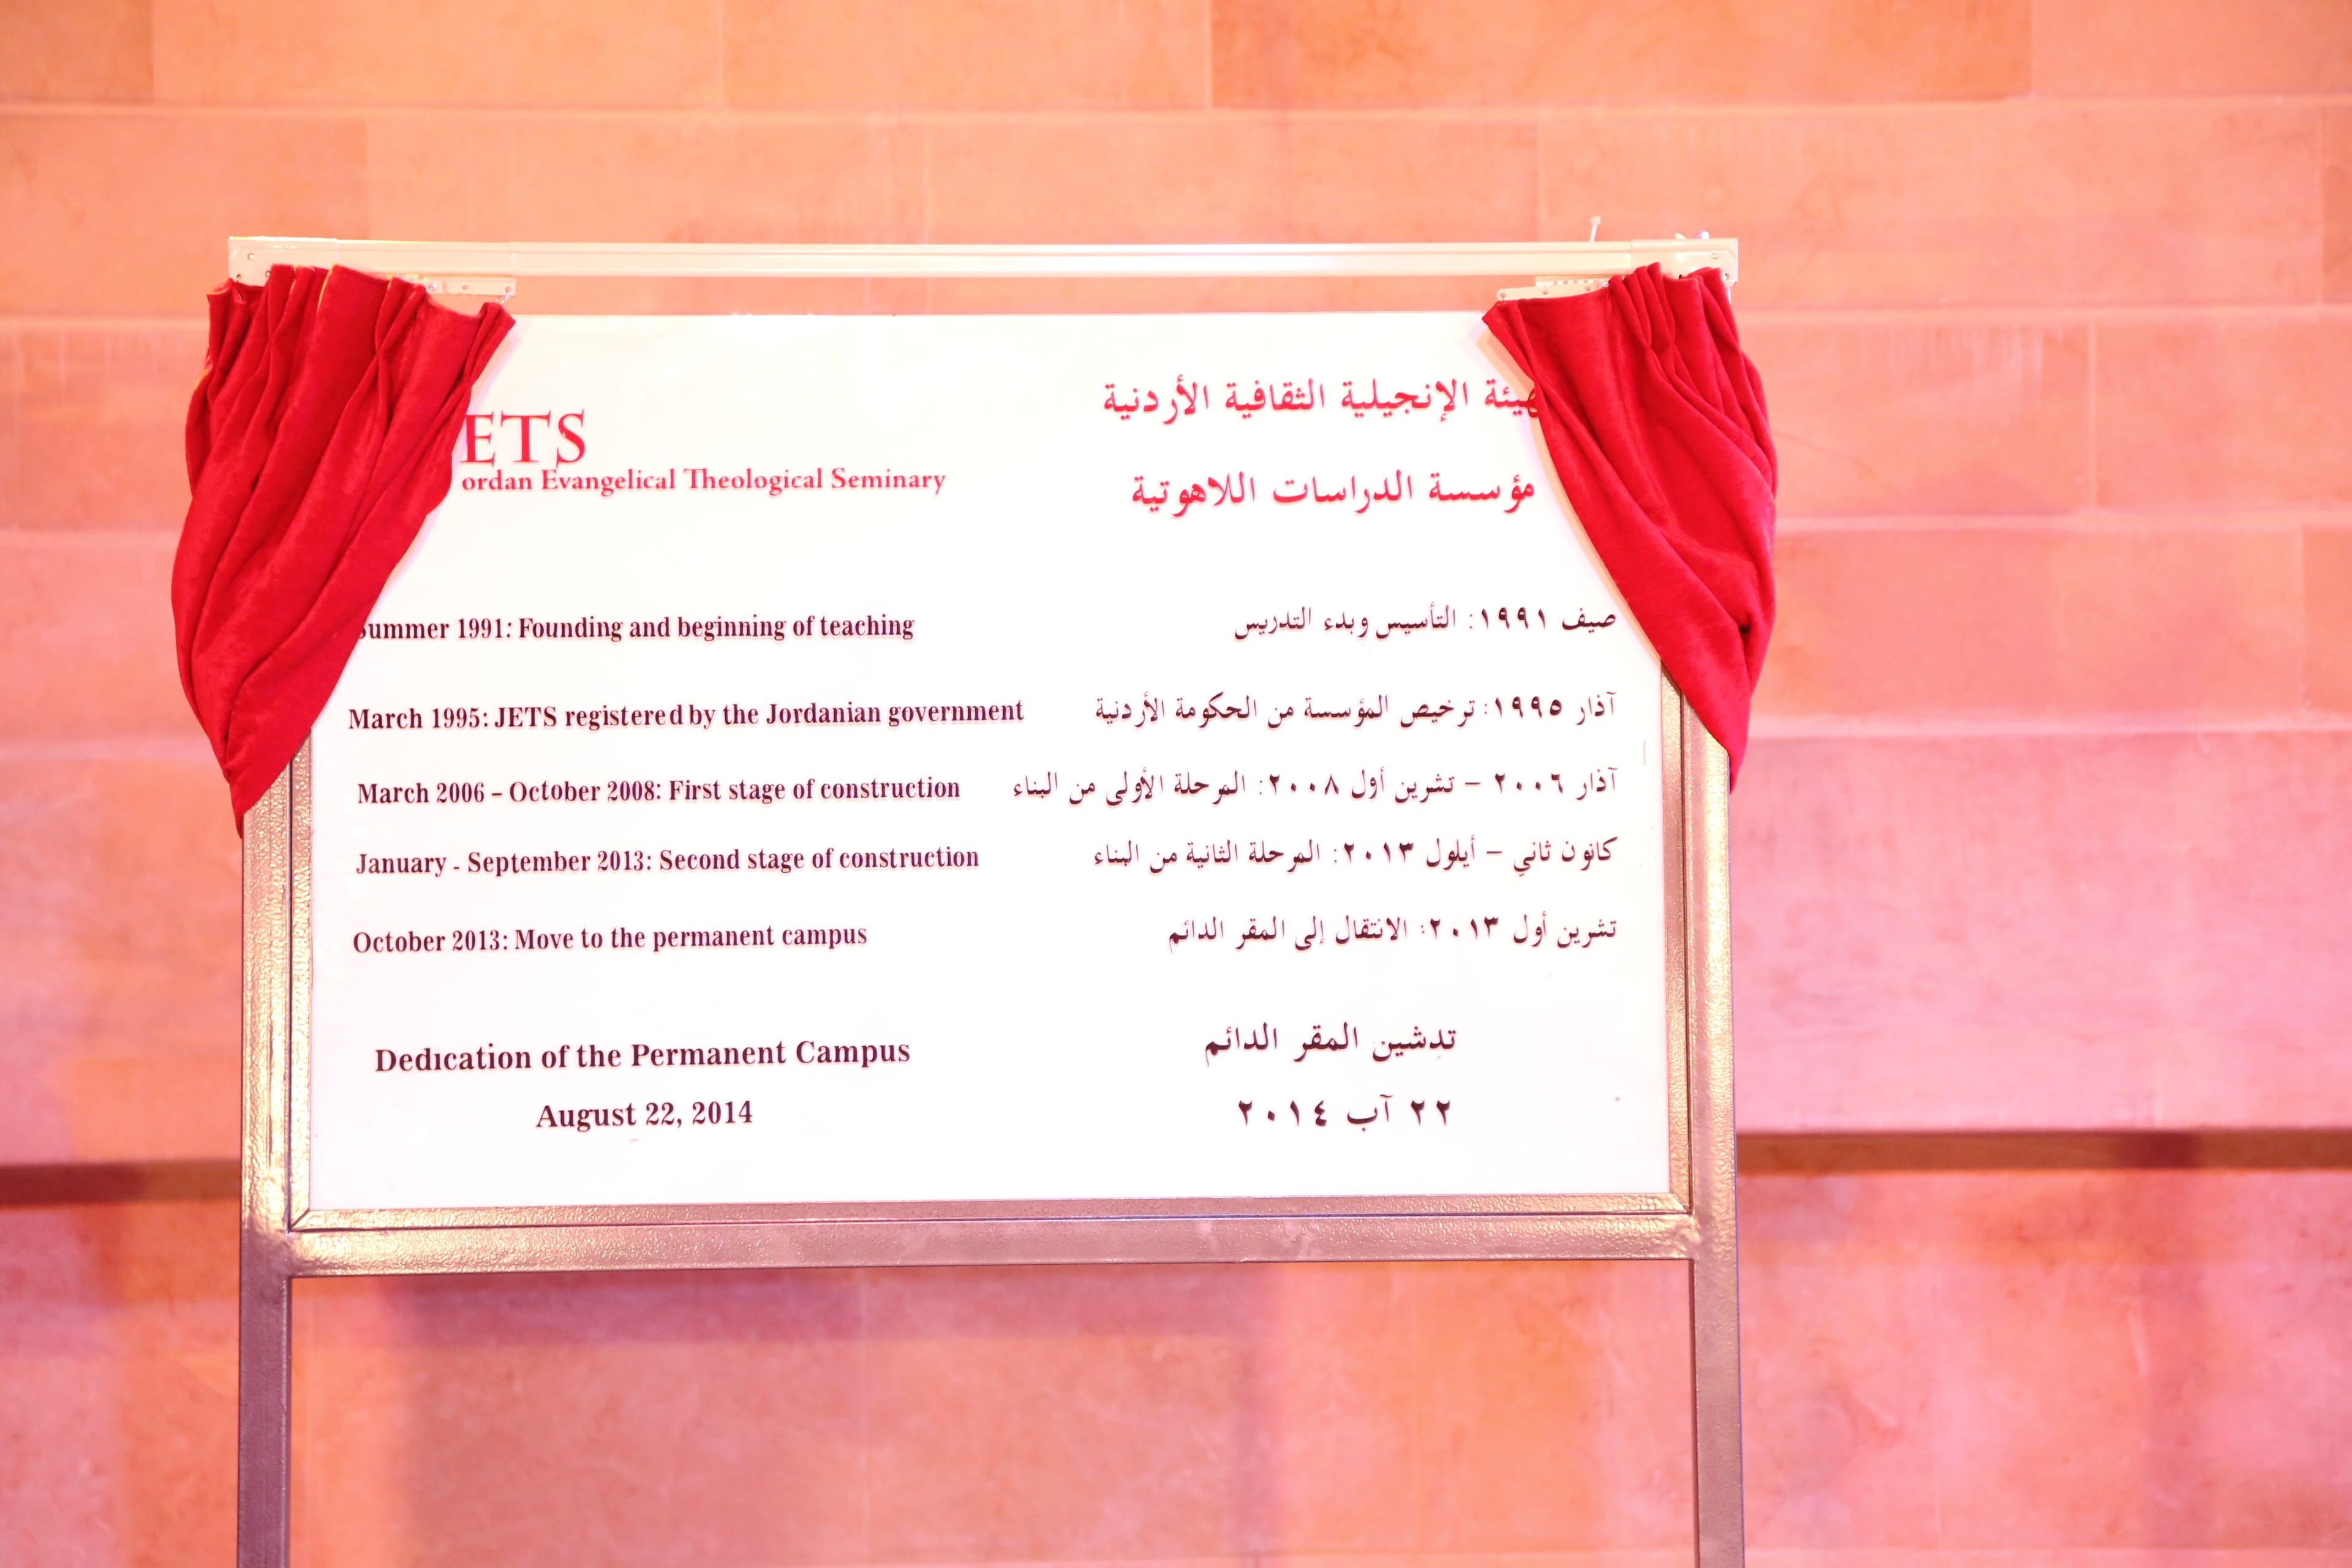 ETS
ordan Evangelical Theological Seminary
هيئة الإنجيلية الثقافية الأردنية
مؤسسة الدراسات اللاهوتية
Summer 1991: Founding and beginning of teaching
صيف ١٩٩١: التأسيس وبدء التدريس
March 1995: JETS registered by the Jordanian government
آذار ١٩٩٥: ترخيص المؤسسة من الحكومة الأردنية
March 2006 – October 2008: First stage of construction
آذار ٢٠٠٦ – تشرين أول ٢٠٠٨: المرحلة الأولى من البناء
January - September 2013: Second stage of construction
كانون ثاني – أيلول ٢٠١٣: المرحلة الثانية من البناء
October 2013: Move to the permanent campus
تشرين أول ٢٠١٣: الانتقال إلى المقر الدائم
Dedication of the Permanent Campus
August 22, 2014
تدشين المقر الدائم
٢٢ آب ٢٠١٤